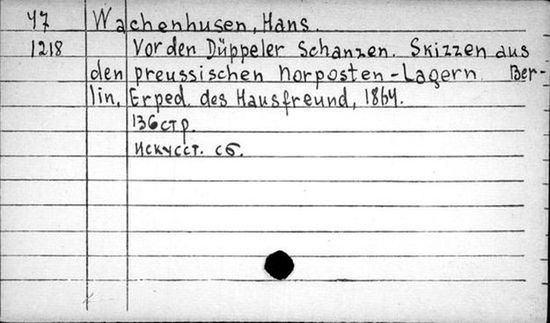 47 Wachenhusen, Hans.
1218 Vor den Düppeler Schanzen. Skizzen aus
den preussischen Norposten-Lagern Ber-
lin, Exped. des Hausfreund, 1864.
136 стр.
Искусст. сб.